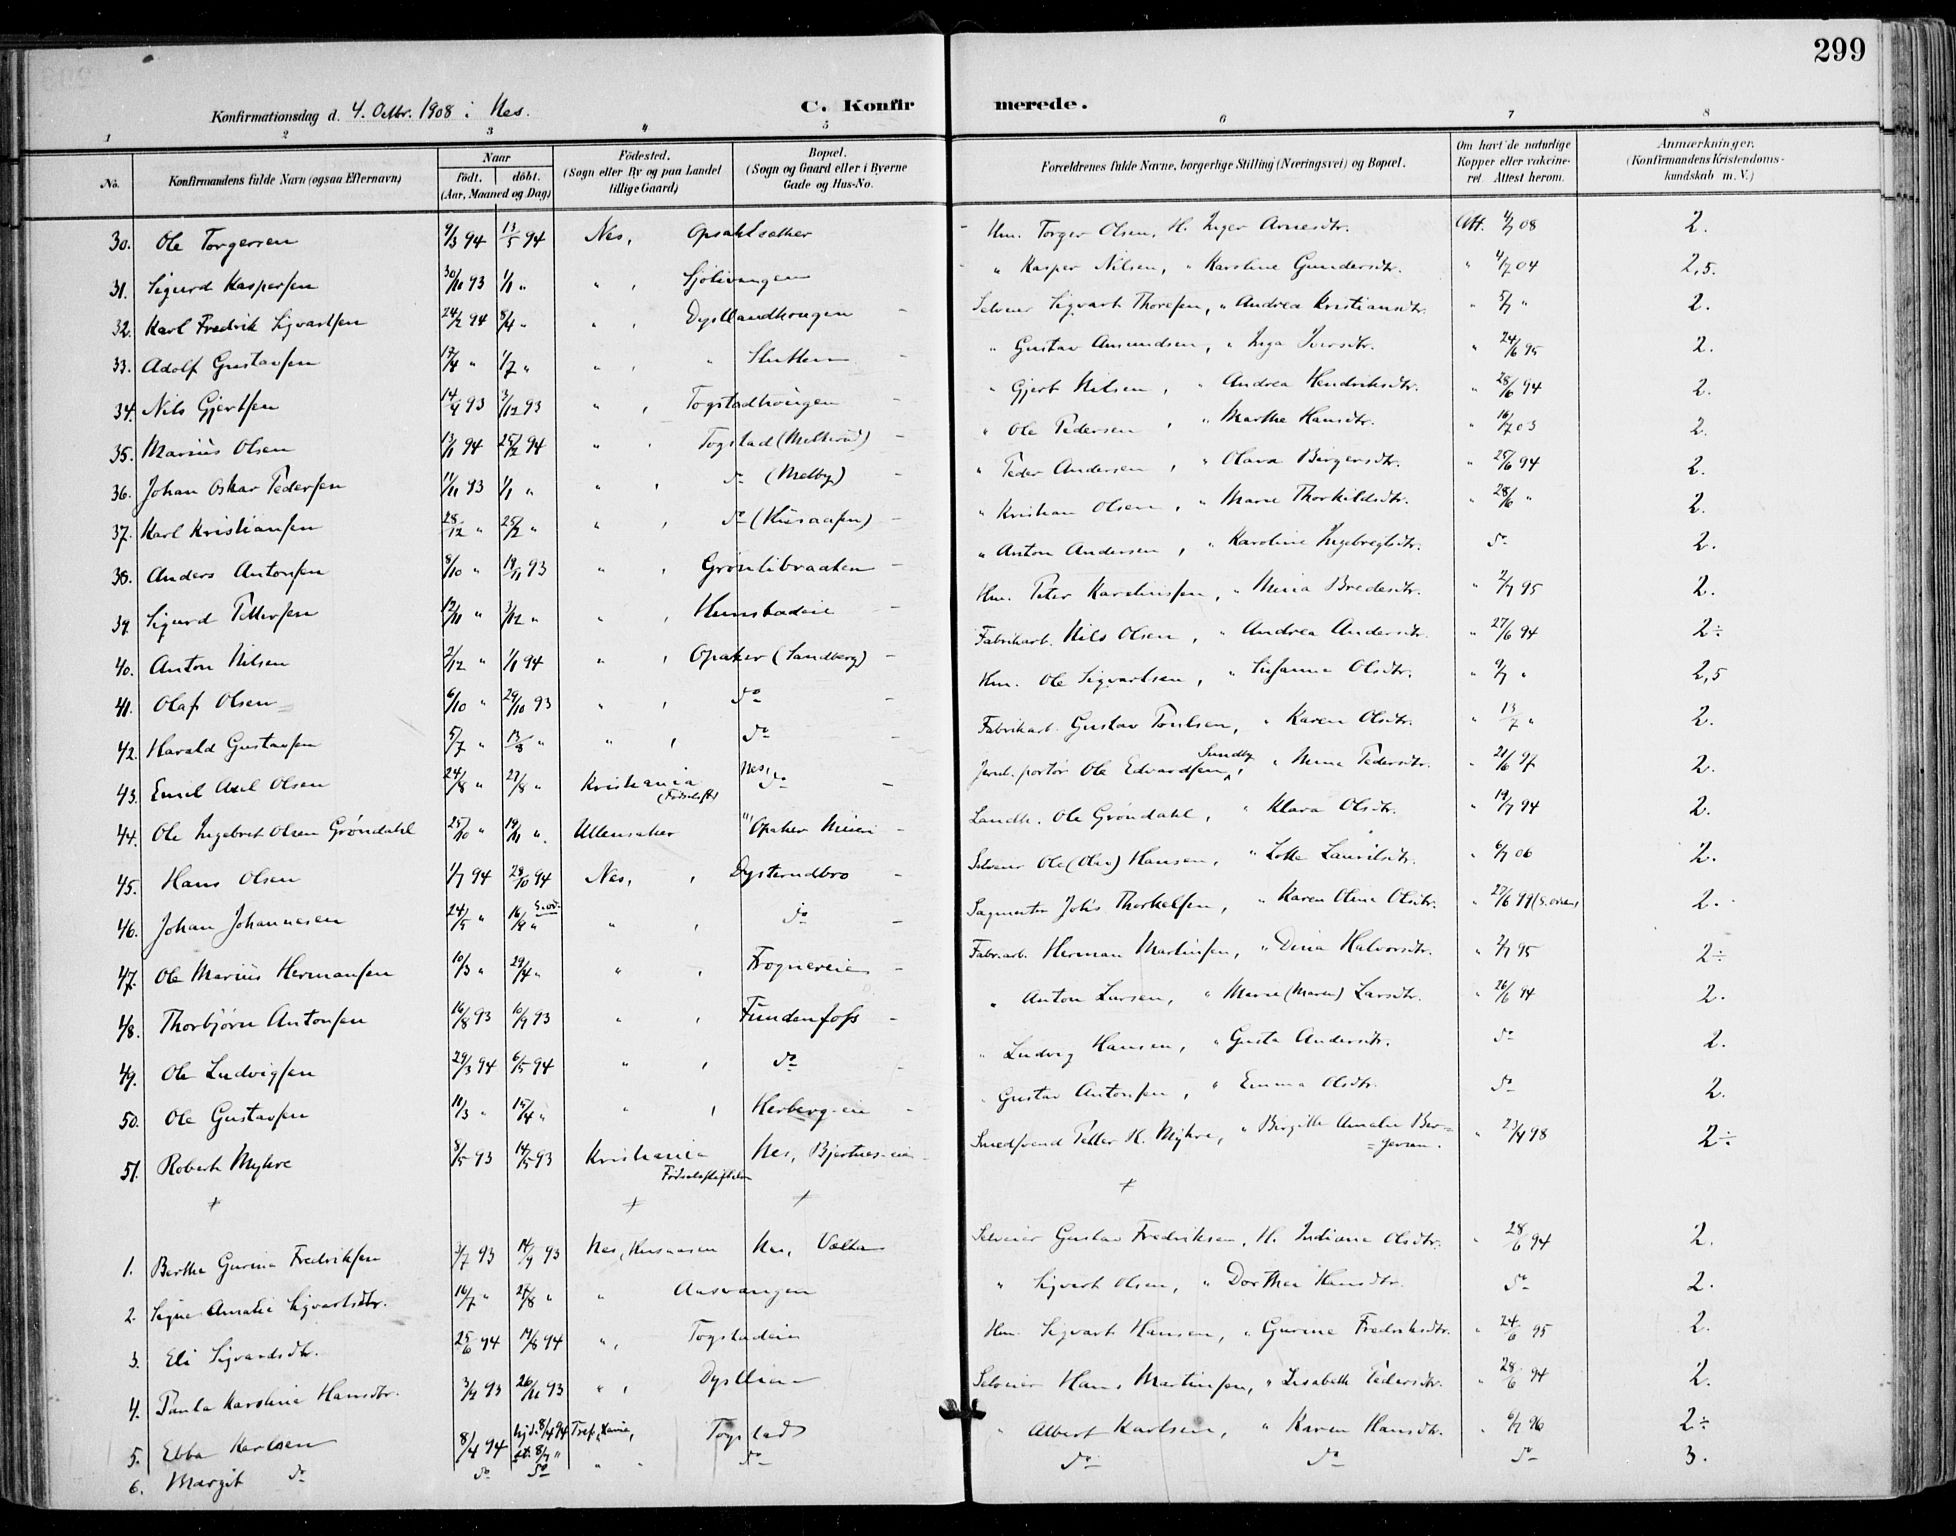 299
Konfirmationsdag d. 4. Octbr. 1908 i Nes. C. Konfirmerede.
1 2 3 4 5 6 7 8
No. Konfirmandens fulde Navn (ogsaa Efternavn) Naar født. døbt. (Aar, Maaned og Dag) Fødested. (Sogn eller By og paa Landet tillige Gaard) Bopæl. (Sogn og Gaard eller i Byerne Gade og Hus-No. Forældrenes fulde Navne, borgerlige Stilling (Næringsvei) og Bopæl. Om havt de naturlige Kopper eller vakcineret. Attest herom. Anmærkninger. (Konfirmandens Kristendomskundskab m. V.)
30. Ole Torgersen 9/3 94 13/5 94 Nes, Opsahlsæther Hm. Torger Olsen, H. Inger Arnesdtr. Att. 08 2.
31. Sigurd Kaspersen 30/11 93 1/1 " " , Sjølivangen " Kasper Nilsen, " Karoline Gundersdtr. " 04 2,5.
32. Karl Fredrik Sigvartsen 24/2 94 8/4 " " , Dysllandhougen Selveier Sigvart Thoresen, " Andrea Kristiansdtr. " 5/7 " 2.
33. Adolf Gustavsen 17/4 " 1/7 " " , " Slutten " Gustav Amundsen, " Inga Iversdtr. " 24/6 95 2.
34. Nils Gjertsen 14/9 93 3/12 93 " , Togstadhougen " Gjert Nilsen, " Andrea Hendriksdtr. " 28/6 94 2.
35. Marius Olsen 13/1 94 25/2 94 " , Togstad (Melterud) " Ole Pedersen, " Marthe Hansdtr. " 16/7 03 2.
36. Johan Oskar Pedersen 11/11 93 1/1 " " , do (Melby) " Peder Andersen, " Olava Birgersdtr. " 25/6 94 2.
37. Karl Kristiansen 28/12 " 25/2 " " , do (Husaasen) " Kristian Olsen, " Marie Thorkildsdtr. " 28/6 " 2.
38. Anders Antonsen 8/10 " 19/11 93 " , Grønlibraaten " Anton Andersen, " Karoline Ingebregtsdtr. do 2.
39. Sigurd Pettersen 12/11 " 3/12 " " , Hunstadeie Hm. Peter Karelinsen, " Mina Bredesdtr. " 2/7 95 2.
40. Anton Nilsen 2/12 " 1/1 94 " , Opaker (Sandberg) Fabrikarb. Nils Olsen, " Andrea Andersdtr. " 27/6 94 2÷
41. Olaf Olsen 6/10 " 29/10 93 " , do Hm. Ole Sigvartsen, " Susanna Olsdtr. " " 2,5
42. Harald Gustavsen 5/7 " 13/8 " " , do Fabrikarb. Gustav Poulsen, " Karen Olsdtr. " 13/7 " 2.
43. Emil Axel Olsen 24/8 " 27/8 " Kristiania (Fødselsst) Nes, do Jernb. portør Ole Edvardsen Sundby, " Mina Pedersdtr. " 21/6 97 2.
44. Ole Ingebret Olsen Grøndahl 25/10 " 19/11 " Ullensaker " Opaker Landh. Ole Grøndahl, " Klara Olsdtr. " 19/7 94 2.
45. Hans Olsen 1/7 94 28/10 94 Nes, , Dysterudbro Selveier Ole (Olav) Hansen, " Lotte Lauritsdtr. " 6/7 06 2.
46. Johan Johannesen 24/5 " 16/9 " " , do Sagmester Johs Thorkelsen, " Karen Oline Olsdtr. " 27/6 99 2.
47. Ole Marius Hermansen 10/3 " 29/4 " " , Frognereie Fabr.arb. Herman Martinsen, " Dina Halvorsdtr. " 2/7 95 2÷
48. Thorbjørn Antonsen 16/8 93 10/9 93 " , Fundenfoss " Anton Larsen, " Marie (Maren) Larsdtr. " 26/6 94 2.
49. Ole Ludvigsen 29/3 94 6/5 94 " , do " Ludvig Hansen, " Gusta Andersdtr. do 2.
50. Ole Gustavsen 11/3 " 15/4 " " , Herberg-eie " Gustav Antonsen, " Emma Olsdtr. do 2.
51. Robert Myhre 8/5 93 14/5 93 Kristiania Fødselsstiftelsen Nes, Bjertnes-eie Smedsvend Petter H. Myhre, " Birgitte Amalie Bergersen. " 23/4 98 2÷
+ + + +
1. Berthe Gurine Fredriksen 3/7 93 14/9 93 Nes, Husaasen Nes, Selveier Gustav Fredriksen, H. Indiana Olsdtr. " 28/6 94 2.
2. Signe Amalie Sigvartsdtr. 16/7 " 27/8 " " Aasvangen " Sigvart Olsen, " Dorthea Hansdtr. do 2.
3. Eli Sigvardsdtr. 25/6 94 19/8 94 " , Togstadeie Hm. Sigvart Hansen, " Gurine Fredriksdtr. " 24/6 95 2.
4. Paula Karoline Hansdtr. 3/9 93 26/11 93 " , Dysllien Selveier Hans Martinsen, " Lisabeth Pedersdtr. " 28/6 94 2.
5. Ebba Karlsen 8/4 94 hjd. 8/4 94 st. 8/7 " Tref., Xania, Togstad " Albert Karlsen, " Karen Hansdtr. " 6/7 96 2÷
6. Margit do do do " " do do do do 3.